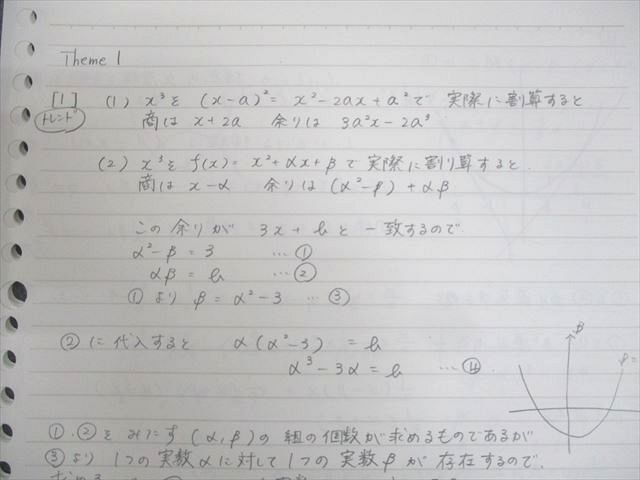 Theme 1
[1] (1) x³を (x-a)² = x²-2ax+a²で 実際に割算すると
トレンド 商は x+2a 余りは 3a²x-2a³
(2) x³を f(x)= x²+αx+βで実際に割り算すると.
商は x-α 余りは (α²-β)+αβ
この余りが 3x+bと一致するので
α²-β=3 …①
αβ=b …②
①より β=α²-3 …③
②に代入すると α(α²-3) = b
α³-3α=b …④.
β
β=
①.②をみたす (α,β)の組の個数が求めるものであるが
③より 1つの実数αに対して1つの実数βが存在するので.
求める